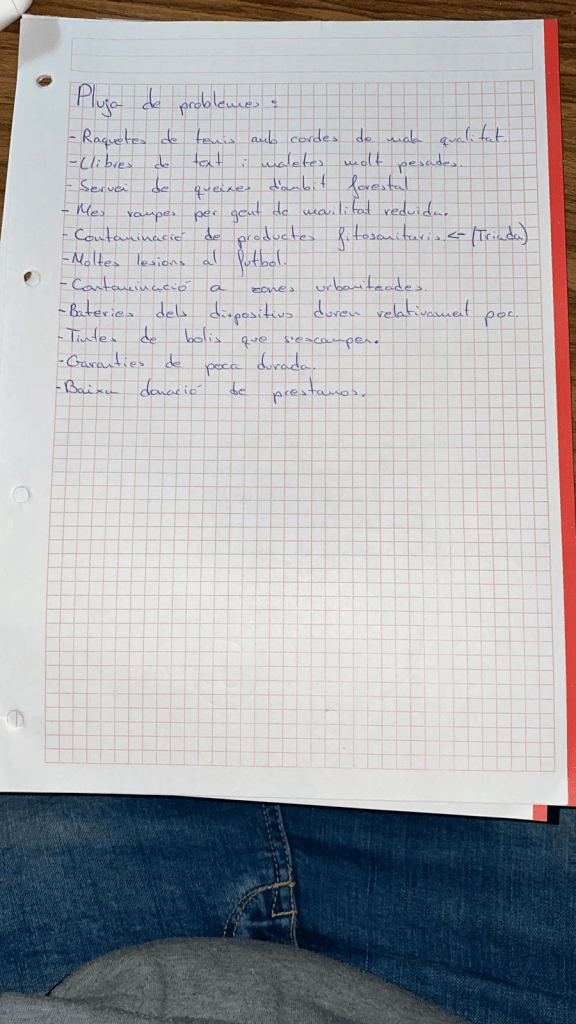 Pluja de problemes :
- Raquetes de tenis amb cordes de mala qualitat.
- Llibres de text i maletes molt pesades.
- Servei de queixes d'ambit forestal
- Mes rampes per gent de movilitat reduida.
- Contaminació de productes fitosanitaris. <- (Triada)
- Moltes lesions al futbol.
- Contaminació a zones urbanitzades.
- Bateries dels dispositius duren relativament poc.
- Tintes de bolis que s'escampen.
- Garanties de poca durada.
- Baixa donació de prestamos.